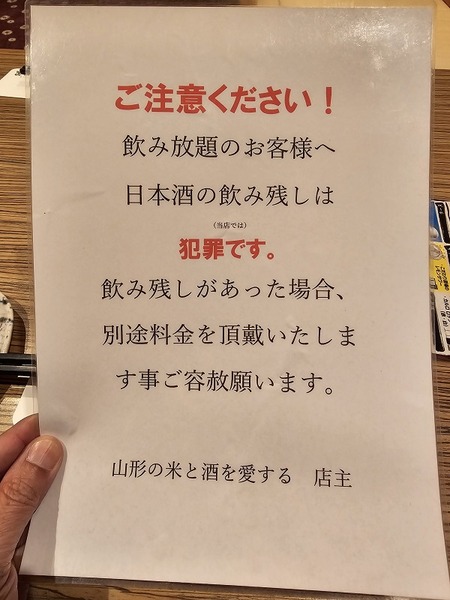 ご注意ください！
飲み放題のお客様へ
日本酒の飲み残しは
（当店では）
犯罪です。
飲み残しがあった場合、
別途料金を頂戴いたしま
す事ご容赦願います。
山形の米と酒を愛する　店主